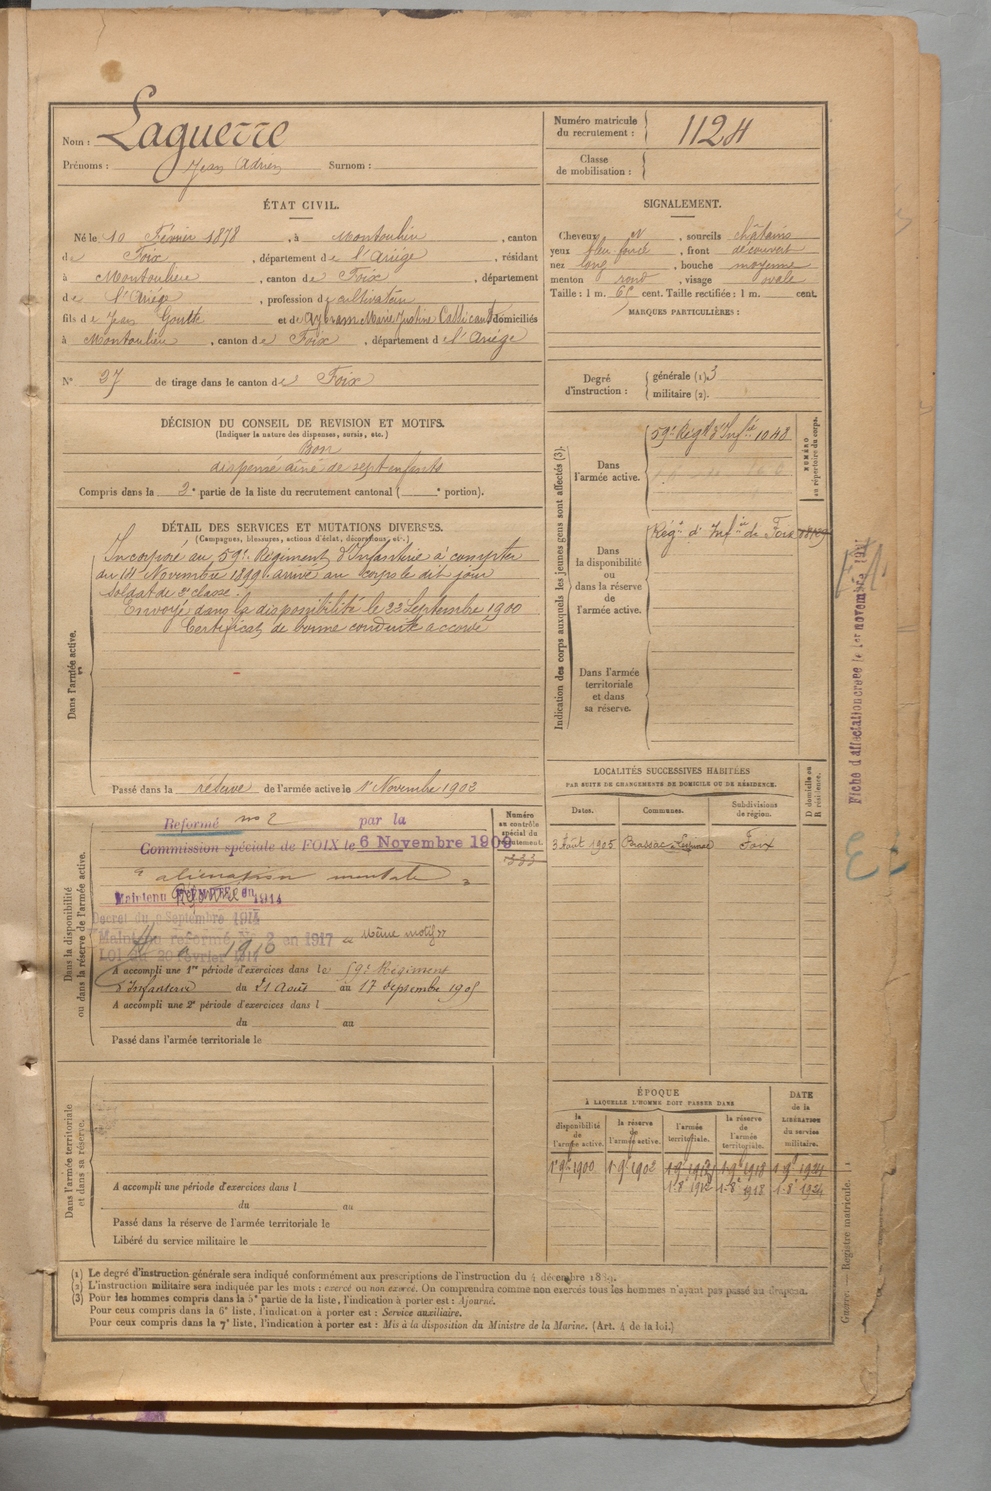 Nom : Laguerre
Prénoms : Jean Adrien Surnom :
Numéro matricule du recrutement : 1124
Classe de mobilisation :
ÉTAT CIVIL.
Né le 10 Février 1878, à Montoulieu, canton
de Foix, département de l'Ariège, résidant
à Montoulieu, canton de Foix, département
de l'Ariège, profession de cultivateur
fils de Jean Goutte et de domiciliés
à Montoulieu, canton de Foix, département de l'Ariège
N° 37 de tirage dans le canton de Foix
SIGNALEMENT.
Cheveux N, sourcils châtains
yeux bleu foncé, front découvert
nez long, bouche moyenne
menton rond, visage ovale
Taille : 1 m. 65 cent. Taille rectifiée : 1 m. cent.
MARQUES PARTICULIÈRES :
Degré d'instruction : générale (1). 3
militaire (2).
DÉCISION DU CONSEIL DE REVISION ET MOTIFS.
(Indiquer la nature des dispenses, sursis, etc.)
Bon
dispensé aîné de sept enfants
Compris dans la 2e partie de la liste du recrutement cantonal ( e portion).
DÉTAIL DES SERVICES ET MUTATIONS DIVERSES.
(Campagnes, blessures, actions d'éclat, décorations, etc.)
Dans l'armée active.
Incorporé au 59e Régiment d'Infanterie à compter
du 14 Novembre 1899. arrivé au corps le dit jour
soldat de 2e classe.
Envoyé dans la disponibilité le 22 Septembre 1900
Certificat de bonne conduite accordé
Passé dans la réserve de l'armée active le 1er Novembre 1902
Indication des corps auxquels les jeunes gens sont affectés (3).
NUMÉRO au répertoire du corps.
Dans l'armée active.
59e Régt d'Infie 1048
Dans la disponibilité ou dans la réserve de l'armée active.
Régt d'Infie de Foix
Dans l'armée territoriale et dans sa réserve.
Fiche d'affectation créée le 1er novembre
LOCALITÉS SUCCESSIVES HABITÉES
PAR SUITE DE CHANGEMENTS DE DOMICILE OU DE RÉSIDENCE.
Dates. Communes. Subdivisions de région. D domicile ou R résidence.
3 Août 1905 Brassac Foix
Dans la disponibilité ou dans la réserve de l'armée active.
Numéro au contrôle spécial du recrutement.
Réformé n° 2 par la
Commission spéciale de FOIX le 6 Novembre 1909
"aliénation mentale"
Maintenu Réformé 1914
Décret du 9 Septembre 1914
Maintenu réformé N° 2 en 1917 "même motif"
LOI du 20 Février 1917
A accompli une 1re période d'exercices dans le 59e Régiment
d'Infanterie du 21 Août au 17 Septembre 1905
A accompli une 2e période d'exercices dans l
du au
Passé dans l'armée territoriale le
Dans l'armée territoriale et dans sa réserve.
A accompli une période d'exercices dans l
du au
Passé dans la réserve de l'armée territoriale le
Libéré du service militaire le
ÉPOQUE
À LAQUELLE L'HOMME DOIT PASSER DANS
la disponibilité de l'armée active. la réserve de l'armée active. l'armée territoriale. la réserve de l'armée territoriale. DATE de la LIBÉRATION du service militaire.
1er 9bre 1900 1er 9bre 1902 1er 9bre 1912 1er 9bre 1918 1er 9bre 1924
1-8e 1912 1-8e 1918 1-8e 1924
(1) Le degré d'instruction générale sera indiqué conformément aux prescriptions de l'instruction du 4 décembre 1889.
(2) L'instruction militaire sera indiquée par les mots : exercé ou non exercé. On comprendra comme non exercés tous les hommes n'ayant pas passé au drapeau.
(3) Pour les hommes compris dans la 5e partie de la liste, l'indication à porter est : Ajourné.
Pour ceux compris dans la 6e liste, l'indication à porter est : Service auxiliaire.
Pour ceux compris dans la 7e liste, l'indication à porter est : Mis à la disposition du Ministre de la Marine. (Art. 4 de la loi.)
Guerre. — Registre matricule. 1